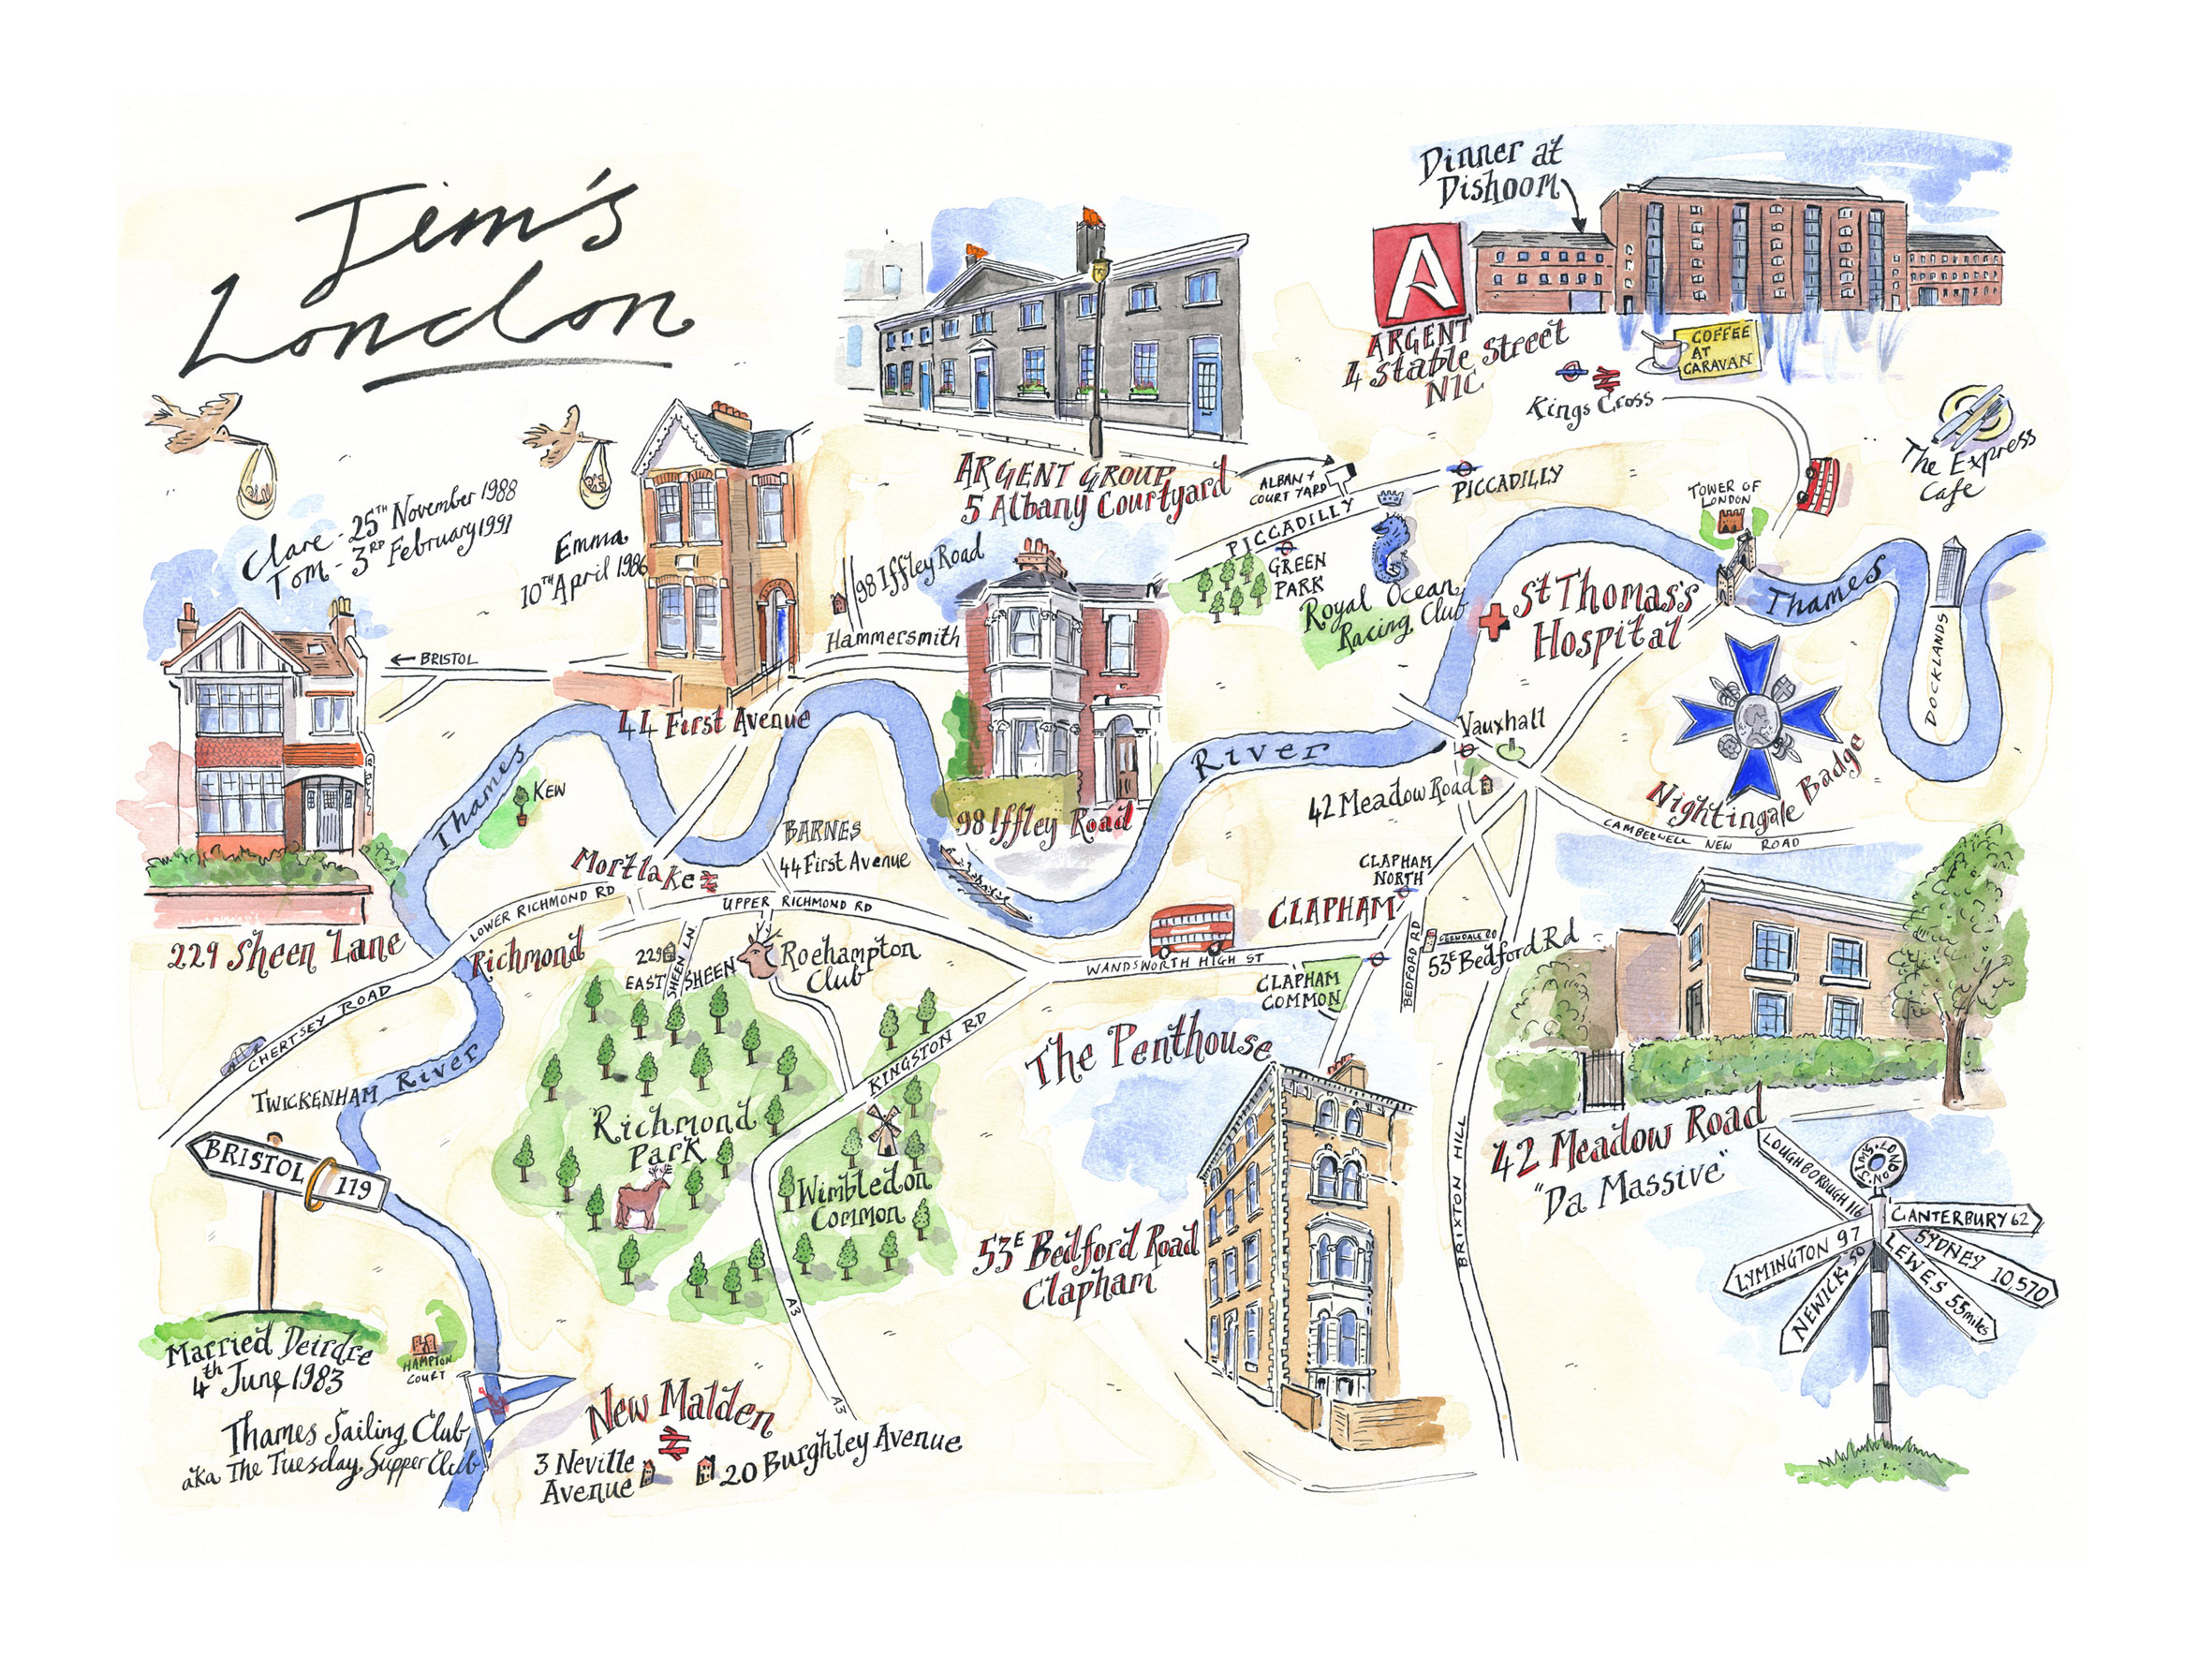 Jim's
London
Dinner at
Dishoom
A
ARGENT
4 Stable Street
N1C
COFFEE
AT
CARAVAN
Kings Cross
The Express
Cafe
Clare - 25TH November 1988
Tom - 3RD February 1991
Emma
10TH April 1986
ARGENT GROUP
5 Albany Courtyard
ALBANY
COURT YARD
PICCADILLY
PICCADILLY
GREEN
PARK
Royal Ocean
Racing Club
TOWER OF
LONDON
St Thomas's
Hospital
Thames
DOCKLANDS
98 Iffley Road
Hammersmith
← BRISTOL
44 First Avenue
98 Iffley Road
River
Vauxhall
42 Meadow Road
Nightingale Badge
CAMBERWELL NEW ROAD
Thames
KEW
229 Sheen Lane
Mortlake
BARNES
44 First Avenue
LOWER RICHMOND RD
UPPER RICHMOND RD
Richmond
229
EAST SHEEN
SHEEN LN.
Roehampton
Club
CLAPHAM
NORTH
CLAPHAM
WANDSWORTH HIGH ST
CLAPHAM
COMMON
BEDFORD RD
FERNDALE RD
53E Bedford Rd
CHERTSEY ROAD
TWICKENHAM
River
KINGSTON RD
Richmond
Park
Wimbledon
Common
A3
A3
The Penthouse
53E Bedford Road
Clapham
BRIXTON HILL
42 Meadow Road
"Da Massive"
BRISTOL 119
Married Deirdre
4th June 1983
HAMPTON
COURT
Thames Sailing Club
aka The Tuesday Supper Club
New Malden
3 Neville
Avenue
20 Burghley Avenue
JIM'S LONDON
LOUGHBOROUGH 116
CANTERBURY 62
LYMINGTON 97
SYDNEY 10,570
NEWICK 50
LEWES 55 miles